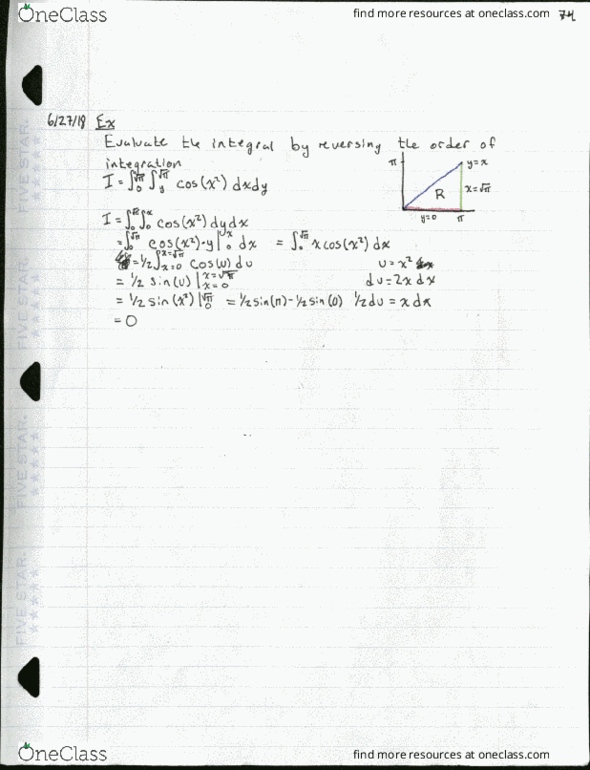 OneClass
find more resources at oneclass.com
74
6/27/18 Ex
Evaluate the integral by reversing the order of
integration
I = ∫₀^√π ∫y^√π cos(x²) dxdy
π
y=x
R
x=√π
y=0
π
I = ∫₀^√π ∫₀^x cos(x²) dydx
= ∫₀^√π cos(x²)·y |₀^x dx = ∫₀^√π x cos(x²) dx
= 1/2 ∫x=0^x=√π cos(u) du
u = x²
= 1/2 sin(u) |x=0^x=√π
du = 2x dx
= 1/2 sin(x²) |₀^√π = 1/2 sin(π) - 1/2 sin(0)
1/2 du = x dx
= 0
FIVE STAR.
FIVE STAR.
FIVE STAR.
FIVE STAR.
OneClass
find more resources at oneclass.com